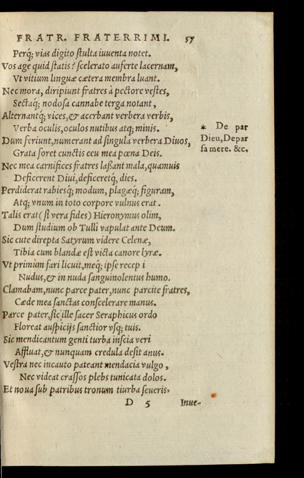 FRATR. FRATERRIMI. 57
Perq; vias digito stulta iuuenta notet.
Vos age quid statis? scelerato auferte lacernam,
Vt vitium linguæ cætera membra luant.
Nec mora, diripiunt fratres à pectore vestes,
Sectaq; nodosa cannabe terga notant,
Alternantq; vices, & acerbant verbera verbis,
Verba oculis, oculos nutibus atq; minis.
Dum feriunt, numerant ad singula verbera Diuos,
Grata foret cunctis ceu mea pœna Deis.
Nec mea carnifices fratres lassant mala, quamuis
Deficerent Diui, deficeretq, dies.
Perdiderat rabiesq; modum, plagæq; figuram,
Atq; vnum in toto corpore vulnus erat.
Talis erat (si vera fides) Hieronymus olim,
Dum studium ob Tulli vapulat ante Deum.
Sic cute direpta Satyrum videre Celenæ,
Tibia cum blandæ est victa canore lyræ.
Vt primùm fari licuit, meq; ipse recepi
Nudus, & in nuda sanguinolentus humo.
Clamabam, nunc parce pater, nunc parcite fratres,
Cæde mea sanctas conscelerare manus.
Parce pater, sic ille sacer Seraphicus ordo
Floreat auspicijs sanctior vsq; tuis.
Sic mendicantum genti turba inscia veri
Affluat, & nunquam credula desit anus.
Vestra nec incauto pateant mendacia vulgo,
Nec videat crassos plebs tunicata dolos.
Et noua sub patribus tronum turba seueris
D 5 Inue-
* De par
Dieu, De par
sa mere. &c.